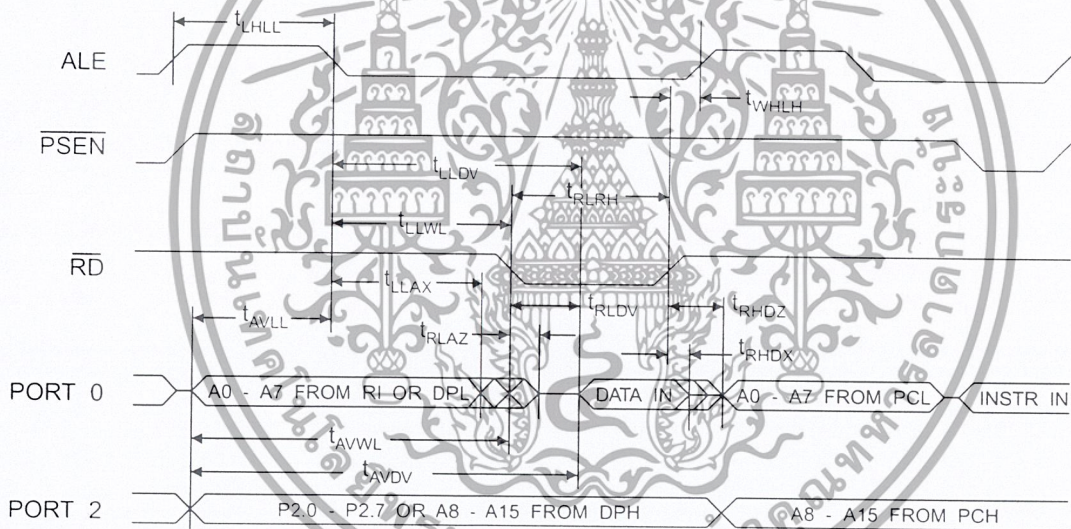 tLHLL
ALE
tWHLH
PSEN
tLLDV
tRLRH
tLLWL
RD
tLLAX
tAVLL
tRLDV
tRHDZ
tRLAZ
tRHDX
PORT 0
A0 - A7 FROM RI OR DPL
DATA IN
A0 - A7 FROM PCL
INSTR IN
tAVWL
tAVDV
PORT 2
P2.0 - P2.7 OR A8 - A15 FROM DPH
A8 - A15 FROM PCH